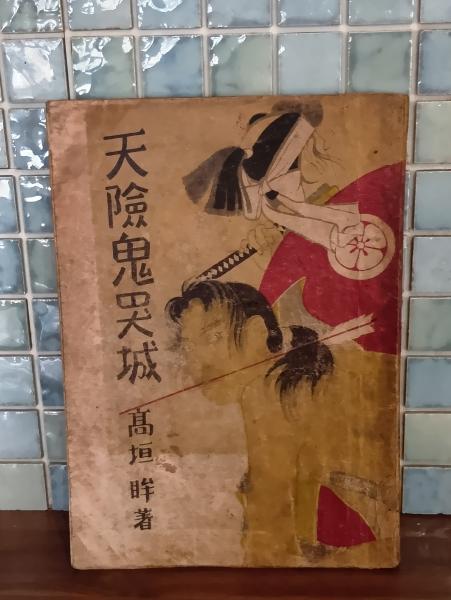 天險鬼哭城
高垣眸著